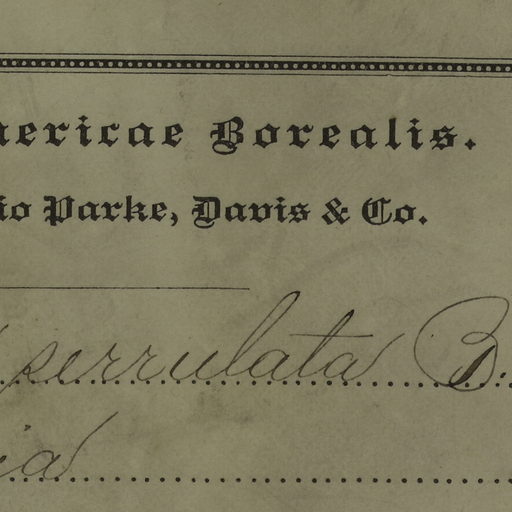 nericae Borealis.
io Parke, Davis & Co.
serrulata B.
ia